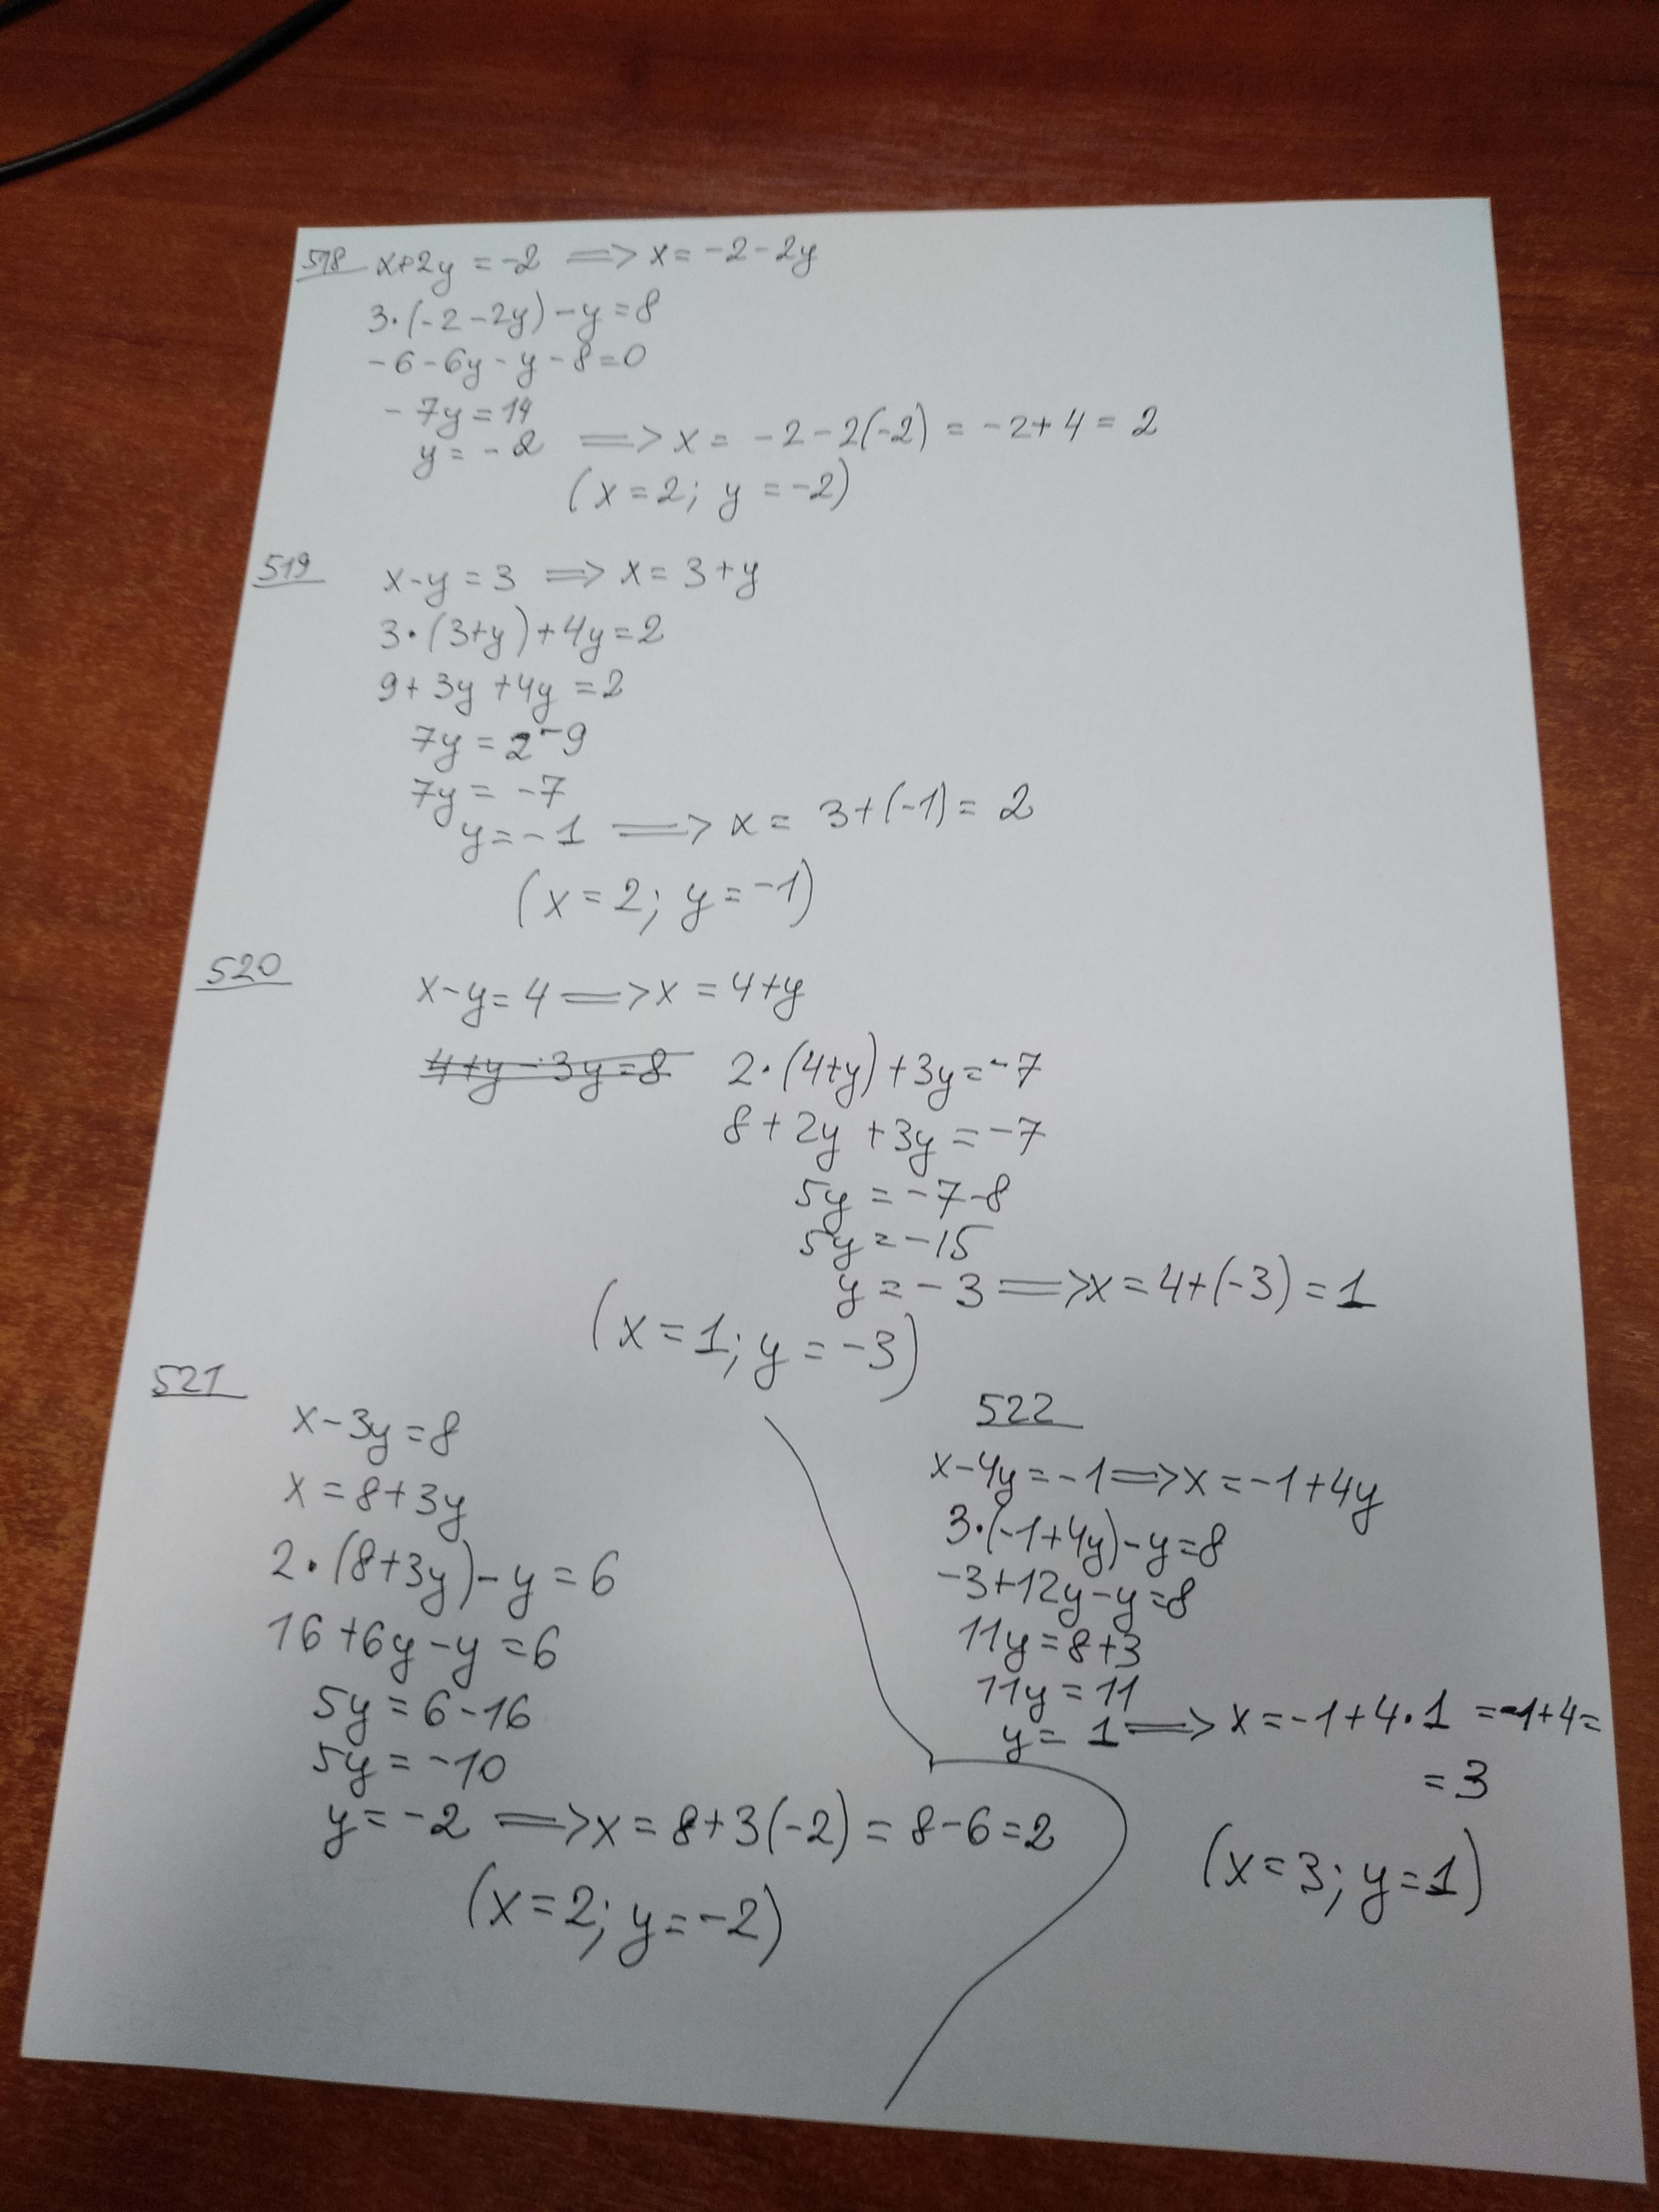 518 x+2y = -2 => x = -2-2y
3·(-2-2y)-y=8
-6-6y-y-8=0
-7y=14
y=-2 => x = -2-2(-2) = -2+4 = 2
(x=2; y=-2)
519 x-y=3 => x=3+y
3·(3+y)+4y=2
9+3y+4y=2
7y=2-9
7y=-7
y=-1 => x = 3+(-1) = 2
(x=2; y=-1)
520
x-y=4 => x=4+y
4+y-3y=8 2·(4+y)+3y=-7
8+2y+3y=-7
5y=-7-8
5y=-15
y=-3 => x=4+(-3)=1
(x=1; y=-3)
521
x-3y=8
x=8+3y
2·(8+3y)-y=6
16+6y-y=6
5y=6-16
5y=-10
y=-2 => x=8+3(-2)=8-6=2
(x=2; y=-2)
522
x-4y=-1 => x=-1+4y
3·(-1+4y)-y=8
-3+12y-y=8
11y=8+3
11y=11
y=1 => x=-1+4·1 =-1+4=
=3
(x=3; y=1)